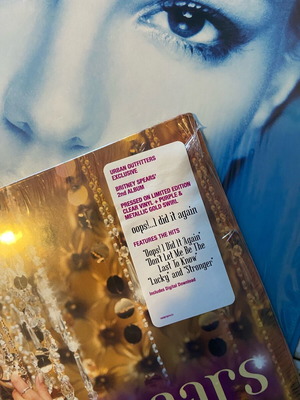 URBAN OUTFITTERS
EXCLUSIVE
BRITNEY SPEARS'
2nd ALBUM
PRESSED ON LIMITED EDITION
CLEAR VINYL + PURPLE &
METALLIC GOLD SWIRL
oops!...i did it again
FEATURES THE HITS
"Oops! I Did It Again"
"Don't Let Me Be The
Last To Know"
"Lucky" and "Stronger"
Includes Digital Download
ears